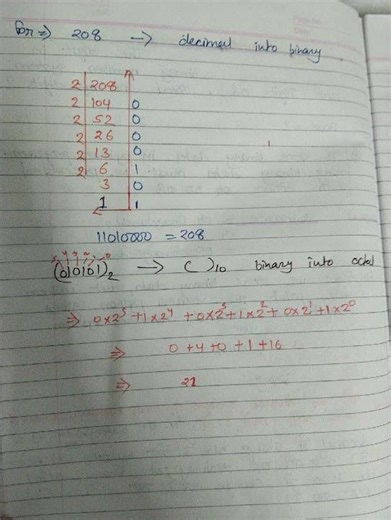 for => 208 -> decimal into binary
2 208
2 104 0
2 52 0
2 26 0
2 13 0
2 6 1
3 0
1 1
11010000 = 208
5 4 3 2 1 0
(010101)₂ -> ( )₁₀ binary into octal
=> 0×2⁵ + 1×2⁴ + 0×2³ + 1×2² + 0×2¹ + 1×2⁰
=> 0 + 4 + 0 + 1 + 16
=> 21